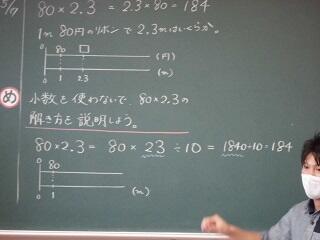 5/7
80×2.3 = 2.3×80=184
1m 80円のリボンで2.3mはいくらか。
0 80 □
(円)
(m)
0 1 2.3
め 小数を使わないで、80×2.3の
解き方を説明しよう。
80×2.3= 80 × 23 ÷10 = 1840÷10=184
0 80
0 1 (m)